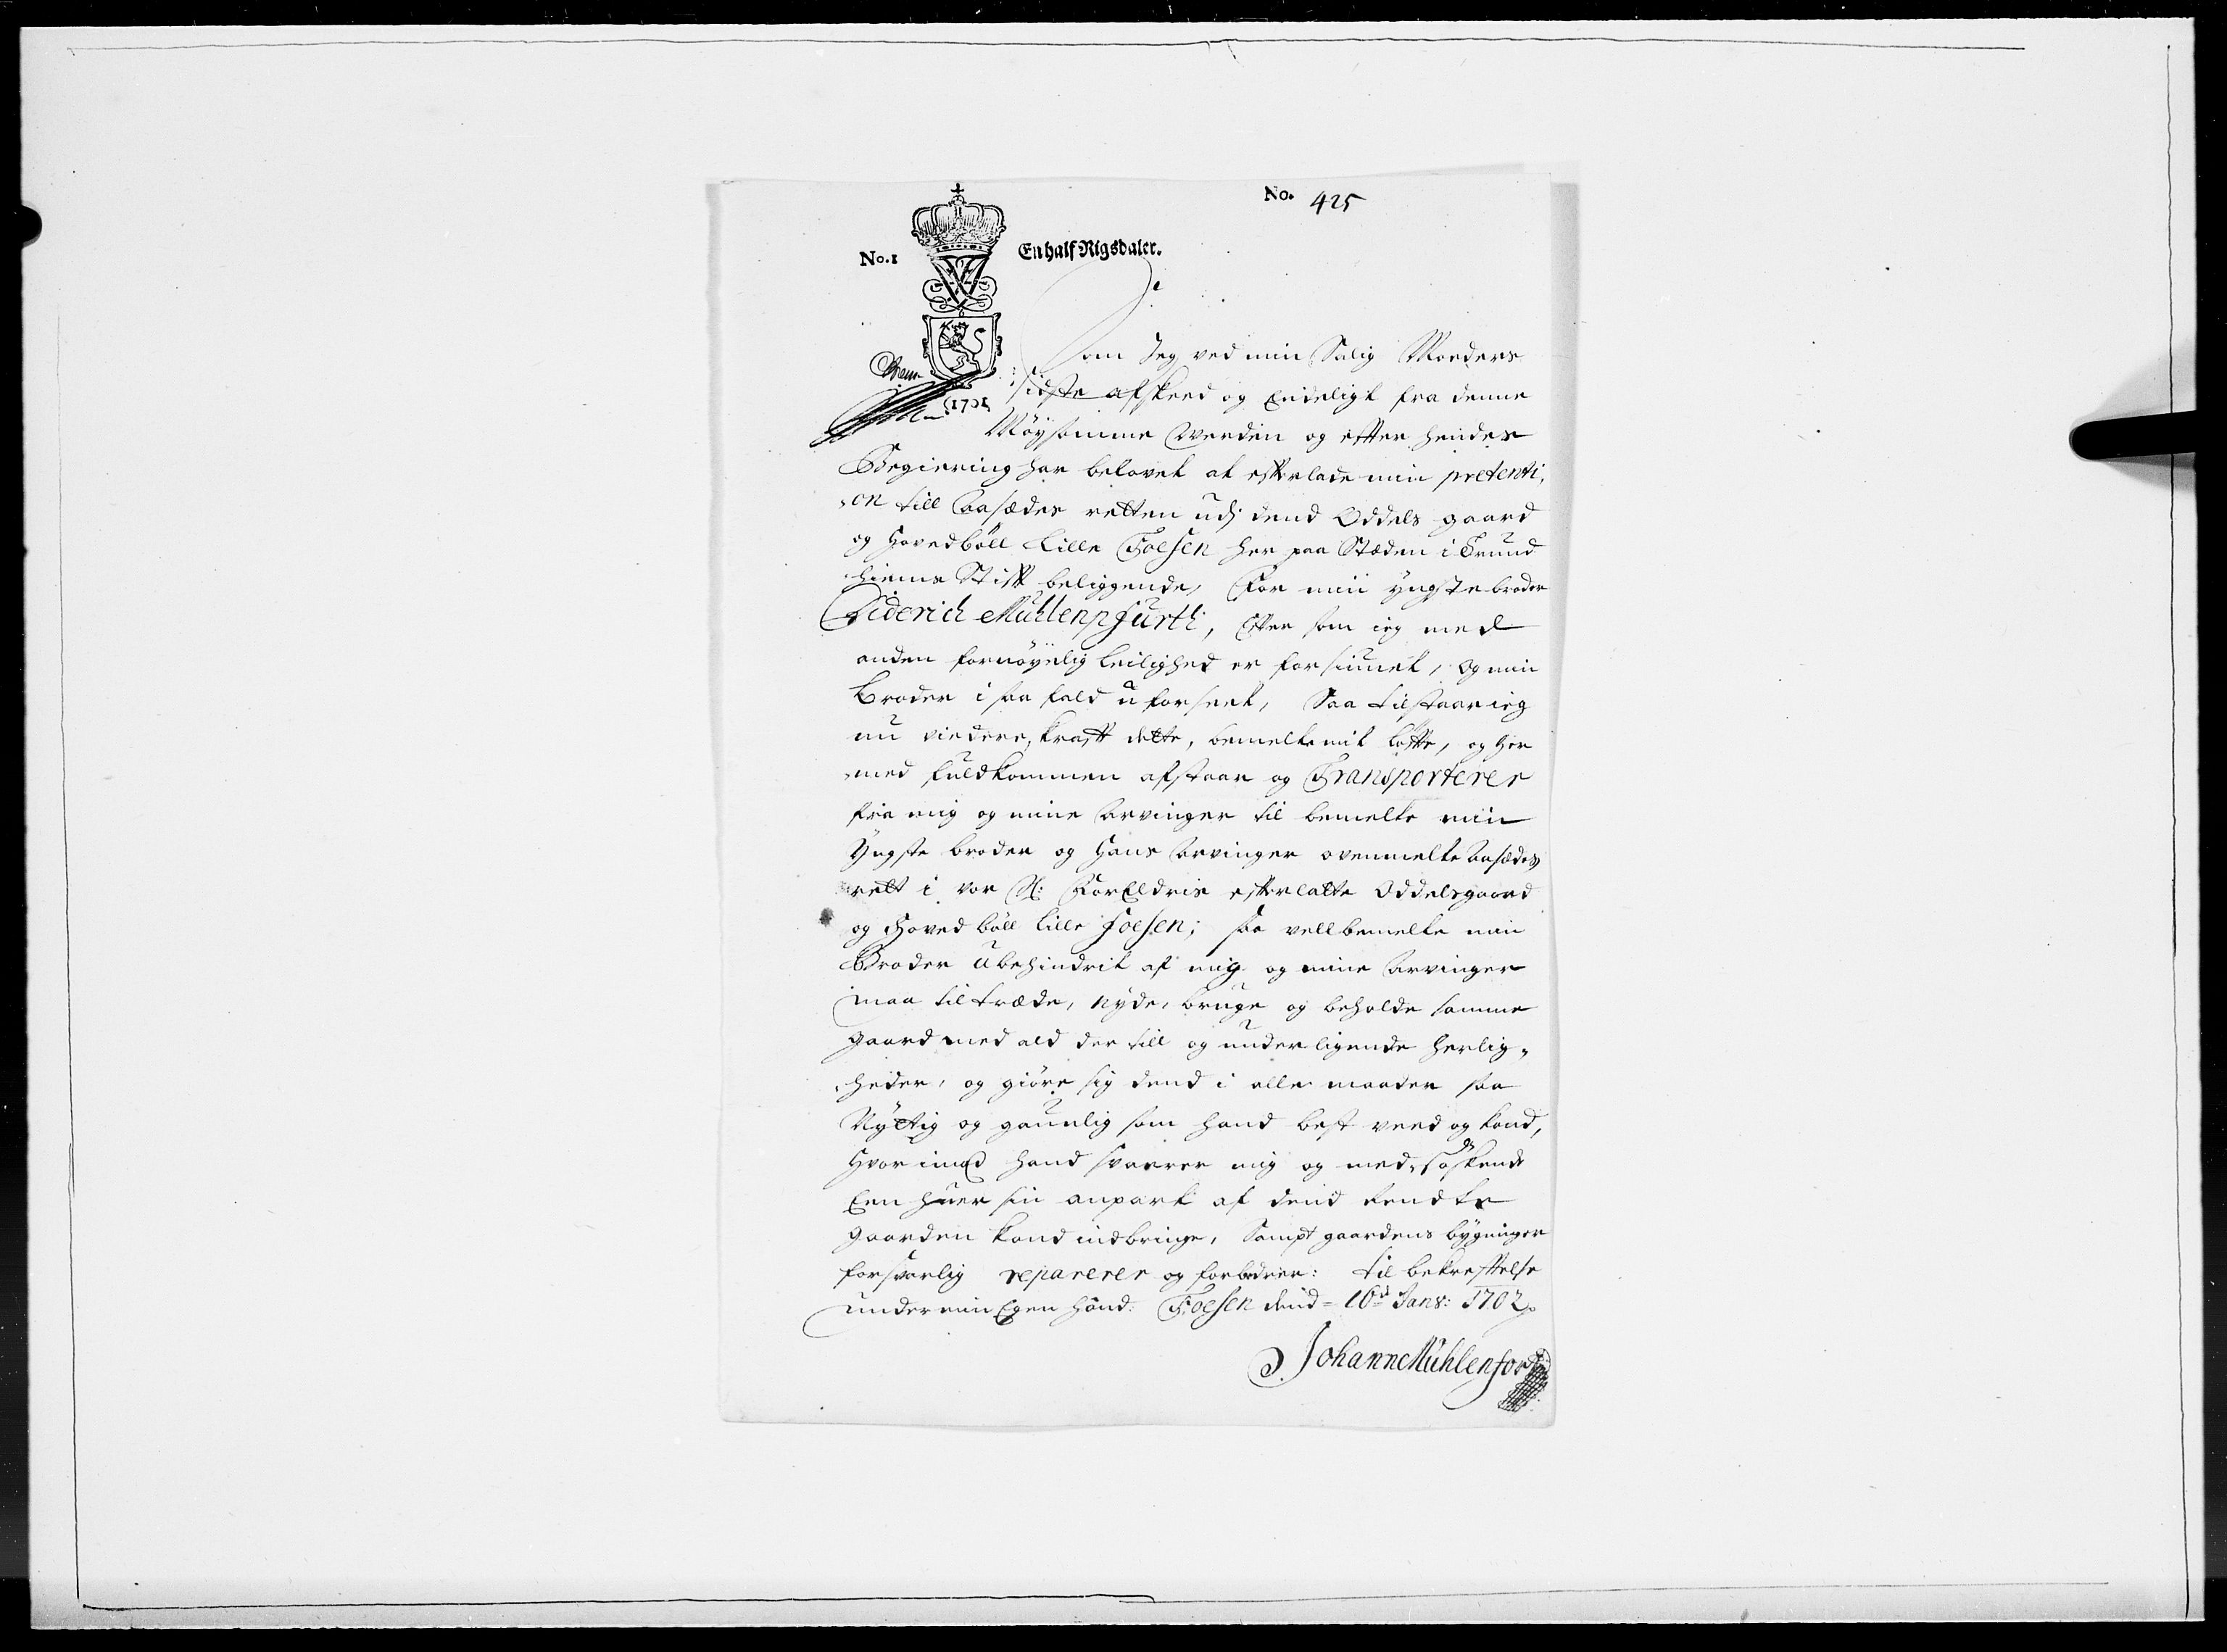 No. 425
No. 1 En half Rigsdaler.
Som Jeg ved min Salig Moeders
sidste afskeed og Endeligt fra denne
1701
Møysomme Verden og effter hendes
Begiering har belovet at efterlade min pretenti,
,on till Aasædes retten udj dend Oddels gaard
og Hovedböll Lille Foesen her paa Stæden i Trund
hiems Stifft beliggende, for min yngste broder
Diderich Muhlenpfurth, Effter som ieg med
anden fornøyelig leilighed er forsiunet, og min
Broder i saa fald uforseet, Saa tilstaar ieg
nu viedere, krafft dette, bemelte mit löffte, og her
med fuldkommen afstaar og Transporterer
fra mig og mine Arvinger til bemelte min
Yngste broder og Hans Arvinger ovenmelte Aasædes
rett i vor Sl: ForEldris efterlatte Oddelsgaard
og Hovedböll Lille Foesen; saa vellbemelte min
Broder Ubehindrit af mig og mine Arvinger
maa tiltræde, nyde, bruge og beholde samme
gaard med ald der till og underligende herlig,,
,heder, og giöre sig dend i alle maader saa
Nyttig og gaunlig som hand best veed og kand,
Hvorimod hand svarer mig og med söskende
Een huer sin anpart af dend Rendte
gaarden kand indbringe, Sampt gaardens bygninger
forsvarlig reparerer og forbedrer: til bekrefftelse
under min Egen Hånd. Foesen dend = 16de Janv: 1702.
Johan Mühlenfort